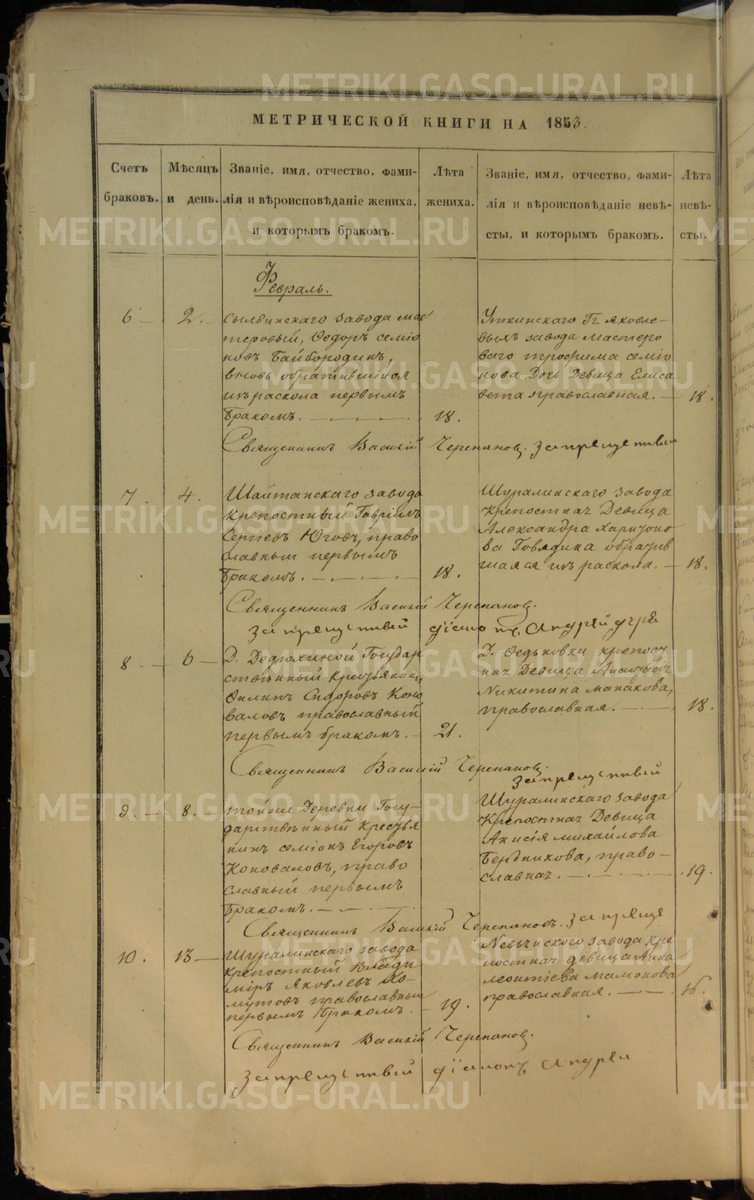 МЕТРИЧЕСКОЙ КНИГИ НА 1853.
Счетъ браковъ.
Мѣсяцъ и день.
Званіе, имя, отчество, фами-
лія и вѣроисповѣданіе жениха,
и которымъ бракомъ.
Лѣта жениха.
Званіе, имя, отчество, фами-
лія и вѣроисповѣданіе невѣ-
сты, и которымъ бракомъ.
Лѣта невѣ-
сты.
Февраль.
6 — 2. —
Сылвинскаго завода мас
теровый, Ѳедоръ семіо
новъ Байбородинъ,
вновь обратившійся
изъ раскола первымъ
бракомъ. — 18.
Уткинскаго Гг. Яковле-
выхъ завода мастеро
ваго трофима семіо
нова Дочь Девица Елиса
вета православная. — 18.
Священникъ Василій Черепановъ.
7. 4.
Шайтанскаго завода
крепостный Гавріилъ
Сергіевъ Юговъ, право
славный первымъ
бракомъ. — 18.
Шуралинскаго завода
крепостная Девица
Александра Харитоно-
ва обратив
шаяся изъ раскола. — 18.
Священникъ Василій Черепановъ.
8 — 6 —
Государ
ственный крестьянинъ
Филипъ Сидоровъ Коно
валовъ православный
первымъ бракомъ. — 21.
Д. Ѳедьковки крепост
ная Девица
Никитина
православная. — 18.
Священникъ Василій Черепановъ.
9. — 8. —
тойже Деревни Госу-
дарственный Крестья
нинъ семіонъ Егоровъ
Коноваловъ, право
славный первымъ
бракомъ. —
Шуралинскаго завода
Крепостная Девица
Анисія михайлова
Бердникова, право-
славная. — 19.
Священникъ Василій Черепановъ.
10. 13 —
Шуралинскаго завода
крепостный Влади
міръ Яковлевъ
православный
первымъ бракомъ. — 19.
завода кре
постная девица Анна
леонтіева
православная. — 16.
Священникъ Василій Черепановъ.
METRIKI.GASO-URAL.RU